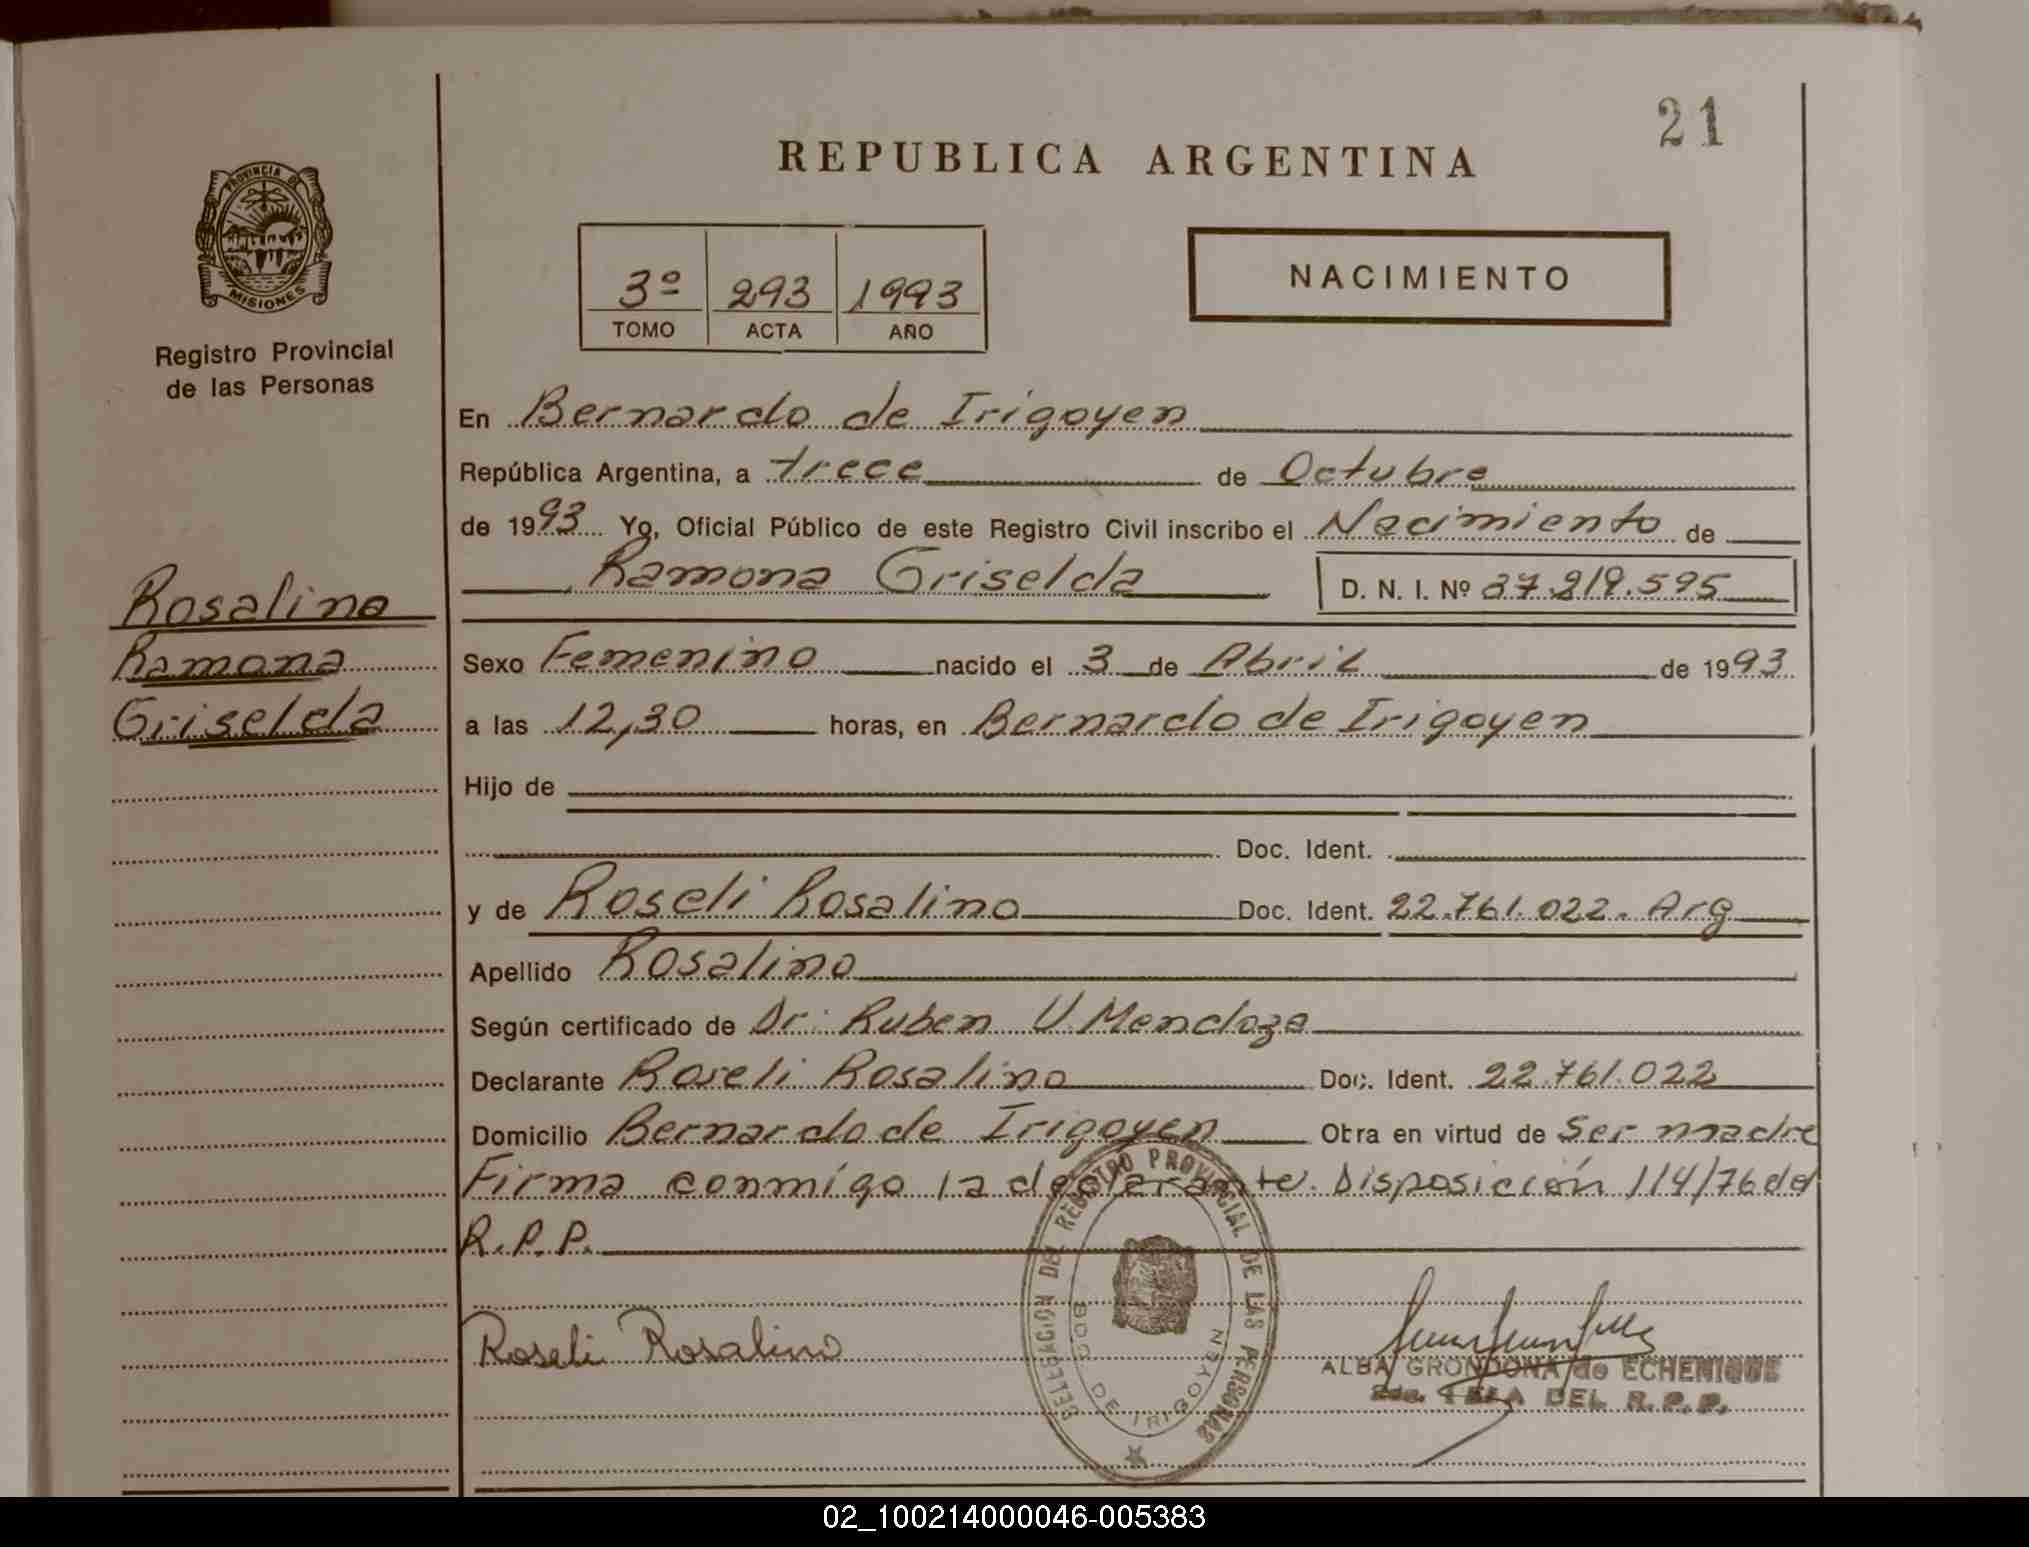 21
REPUBLICA ARGENTINA
PROVINCIA DE
MISIONES
Registro Provincial
de las Personas
3º 293 1993
TOMO ACTA AÑO
NACIMIENTO
En Bernardo de Irigoyen
República Argentina, a trece de Octubre
de 1993 Yo, Oficial Público de este Registro Civil inscribo el Nacimiento de
Ramona Griselda D. N. I. Nº 37.219.595
Rosalino
Ramona
Griselda
Sexo Femenino nacido el 3 de Abril de 1993
a las 12,30 horas, en Bernardo de Irigoyen
Hijo de
Doc. Ident.
y de Roseli Rosalino Doc. Ident. 22.761.022. Arg
Apellido Rosalino
Según certificado de Dr. Ruben U. Mendoza
Declarante Roseli Rosalino Doc. Ident. 22.761.022
Domicilio Bernardo de Irigoyen Obra en virtud de Ser madre
Firma conmigo la declarante. Disposición 114/76 del
R.P.P.
DELEGACION DEL REGISTRO PROVINCIAL DE LAS PERSONAS
BDO. DE IRIGOYEN
Roseli Rosalino
ALBA GRONDONA de ECHENIQUE
DEL R.P.P.
02_100214000046-005383